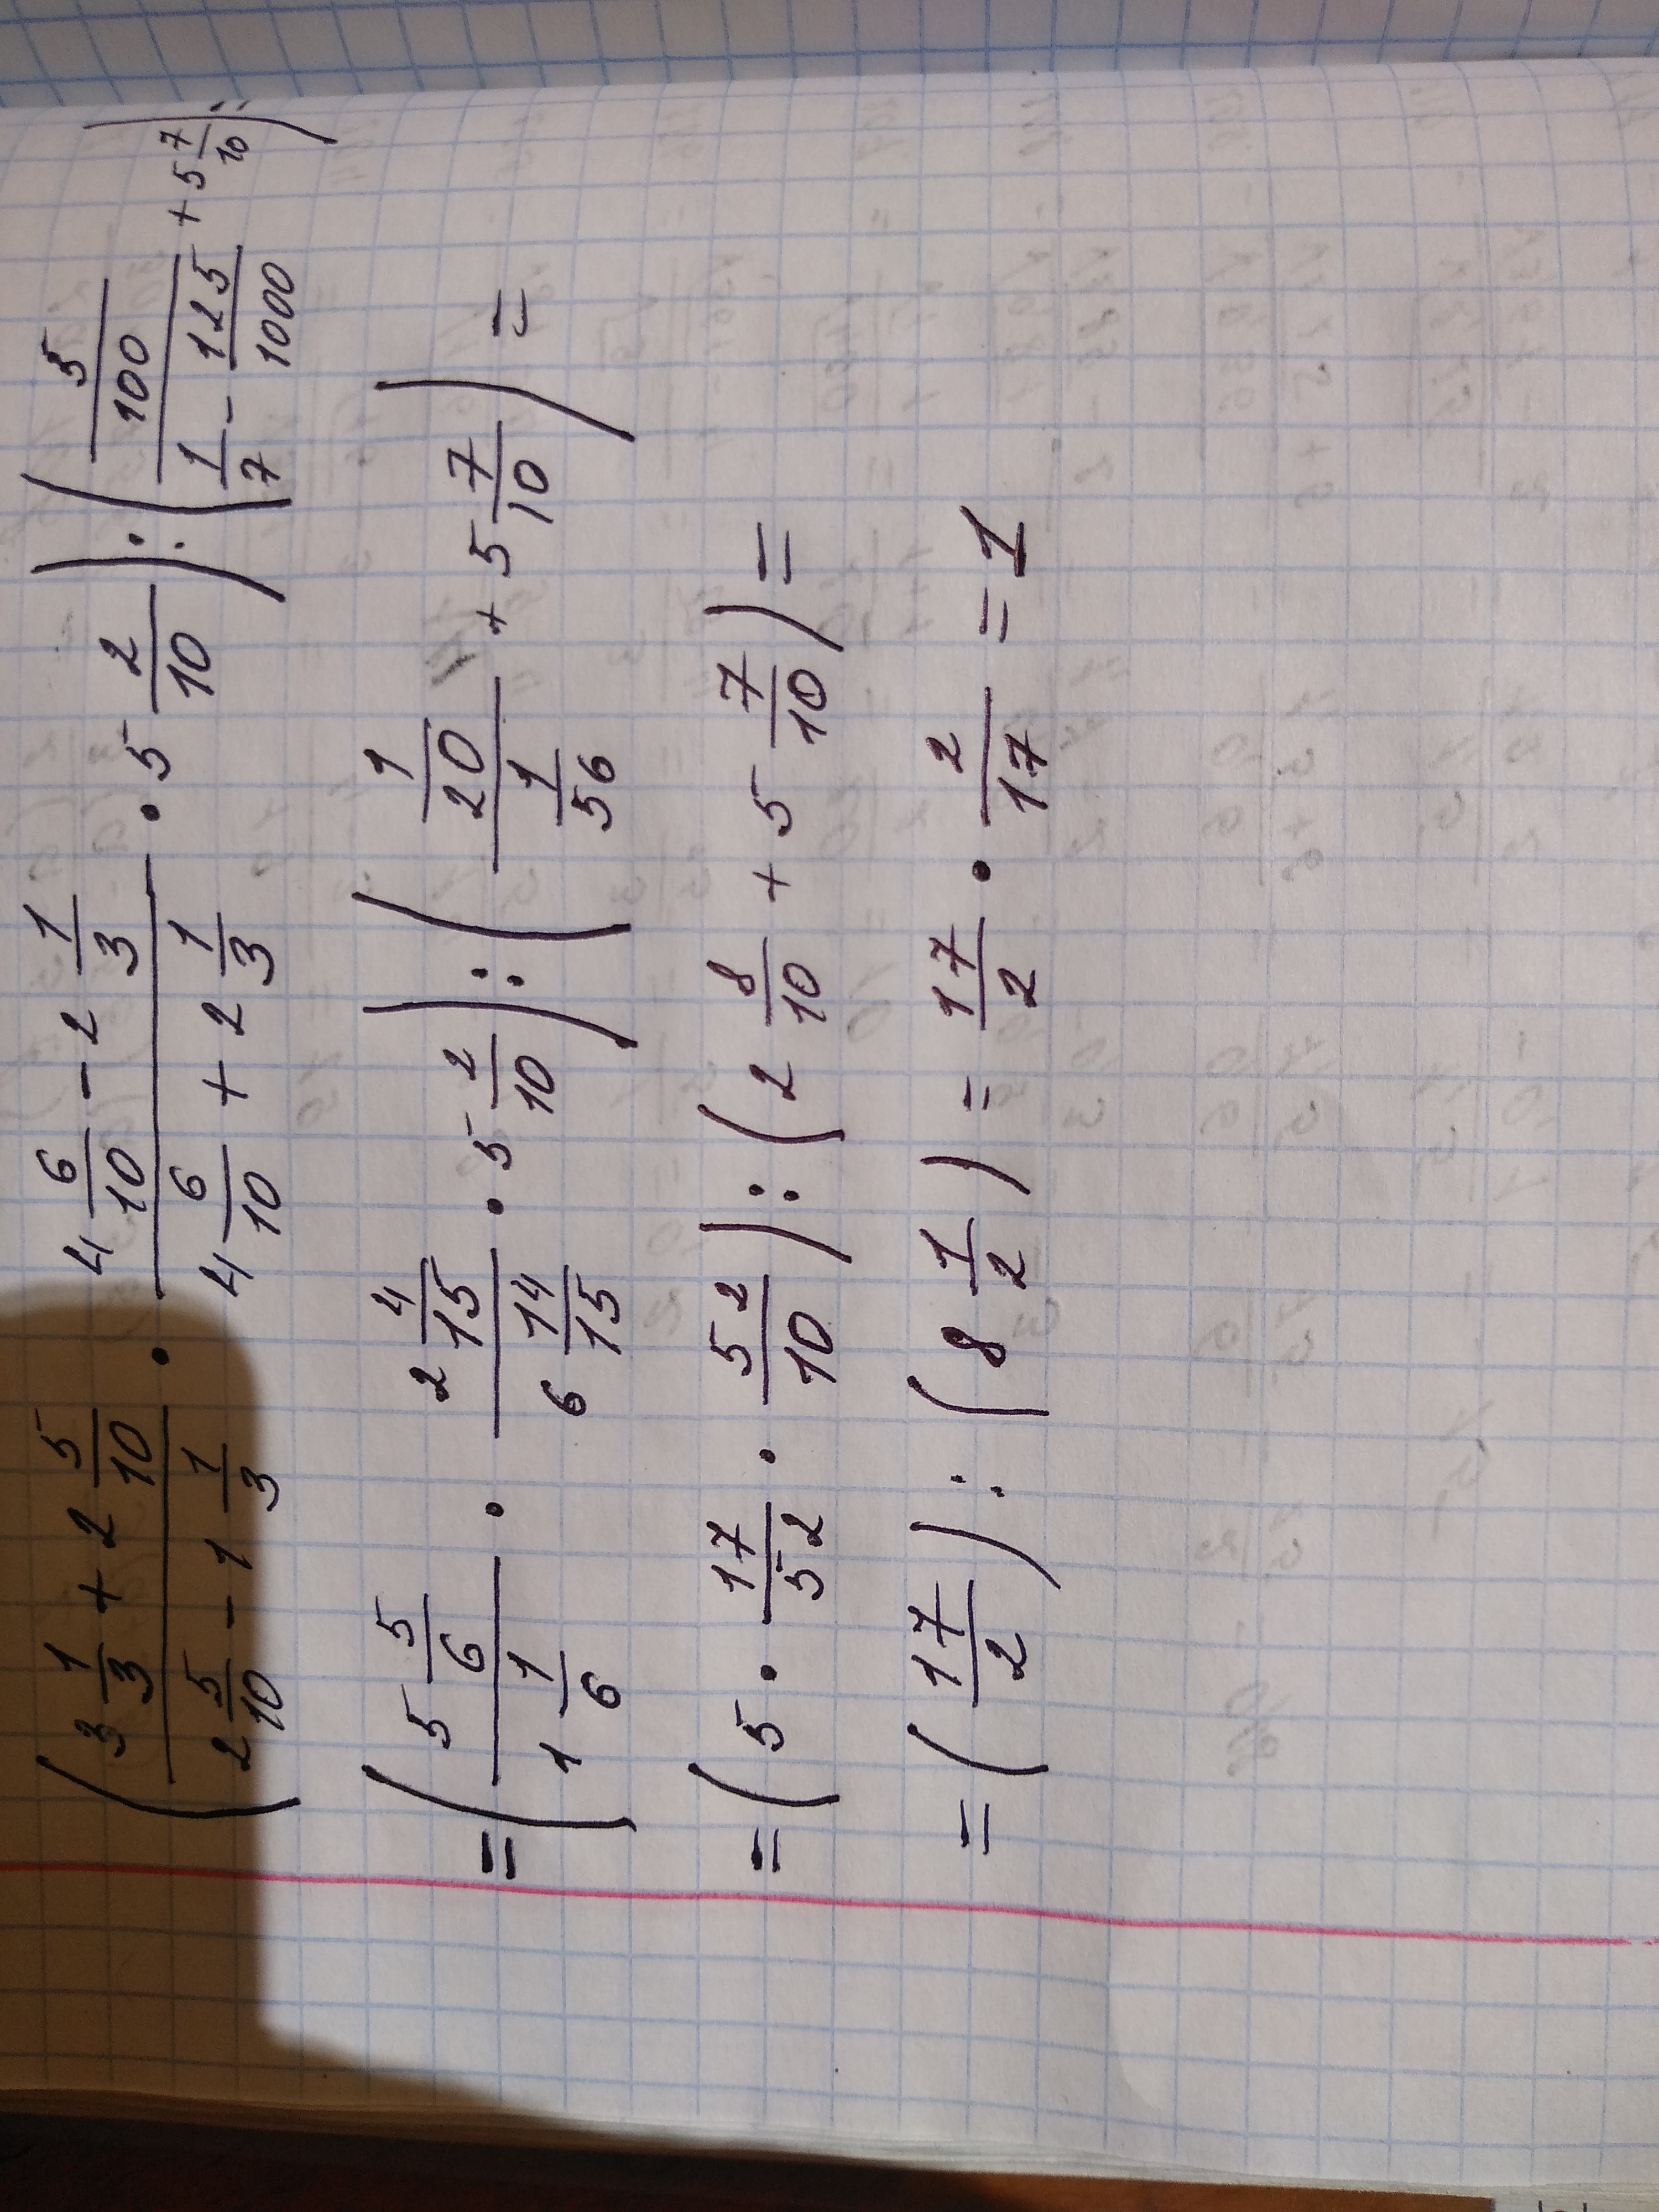 (\frac{3\frac{1}{3} + 2\frac{5}{10}}{2\frac{5}{10} - 1\frac{1}{3}} · \frac{4\frac{6}{10} - 2\frac{1}{3}}{4\frac{6}{10} + 2\frac{1}{3}} · 5\frac{2}{10}) : (\frac{\frac{5}{100}}{\frac{1}{7} - \frac{125}{1000}} + 5\frac{7}{10}) =
= (\frac{5\frac{5}{6}}{1\frac{1}{6}} · \frac{2\frac{4}{15}}{6\frac{14}{15}} · 5\frac{2}{10}) : (\frac{\frac{1}{20}}{\frac{1}{56}} + 5\frac{7}{10}) =
= (5 · \frac{17}{52} · \frac{52}{10}) : (2\frac{8}{10} + 5\frac{7}{10}) =
= (\frac{17}{2}) : (8\frac{1}{2}) = \frac{17}{2} · \frac{2}{17} = 1